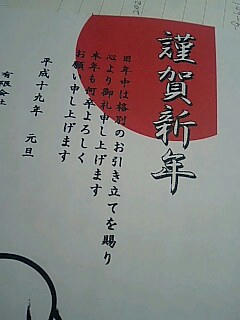 謹賀新年
旧年中は格別のお引き立てを賜り
心より御礼申し上げます
本年も何卒よろしく
お願い申し上げます
平成十九年 元旦
有限会社